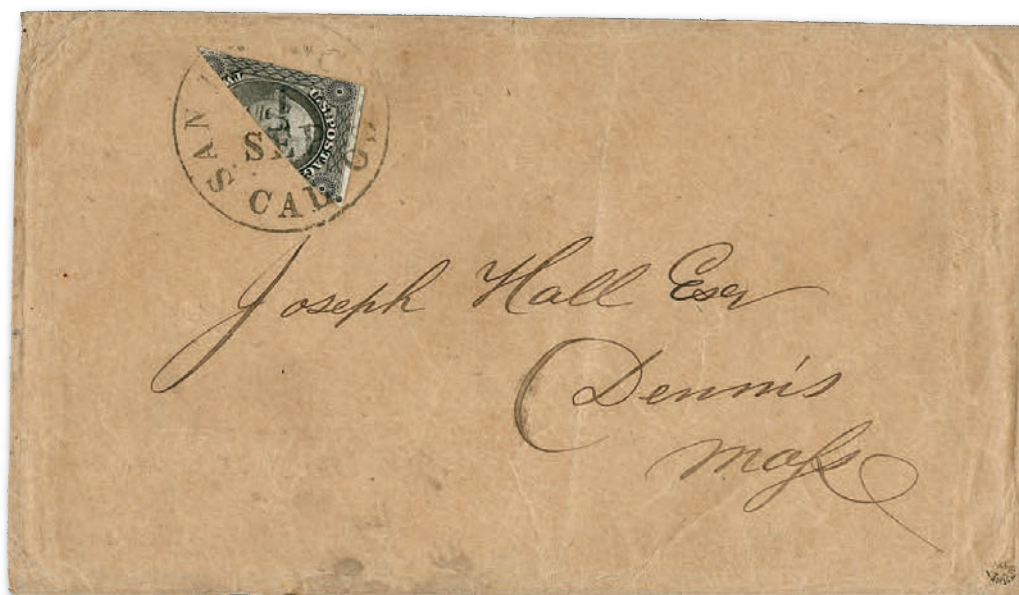 SAN
SEP
CAL
U.S. POSTAG
Joseph Hall Esqr
Dennis
Mass